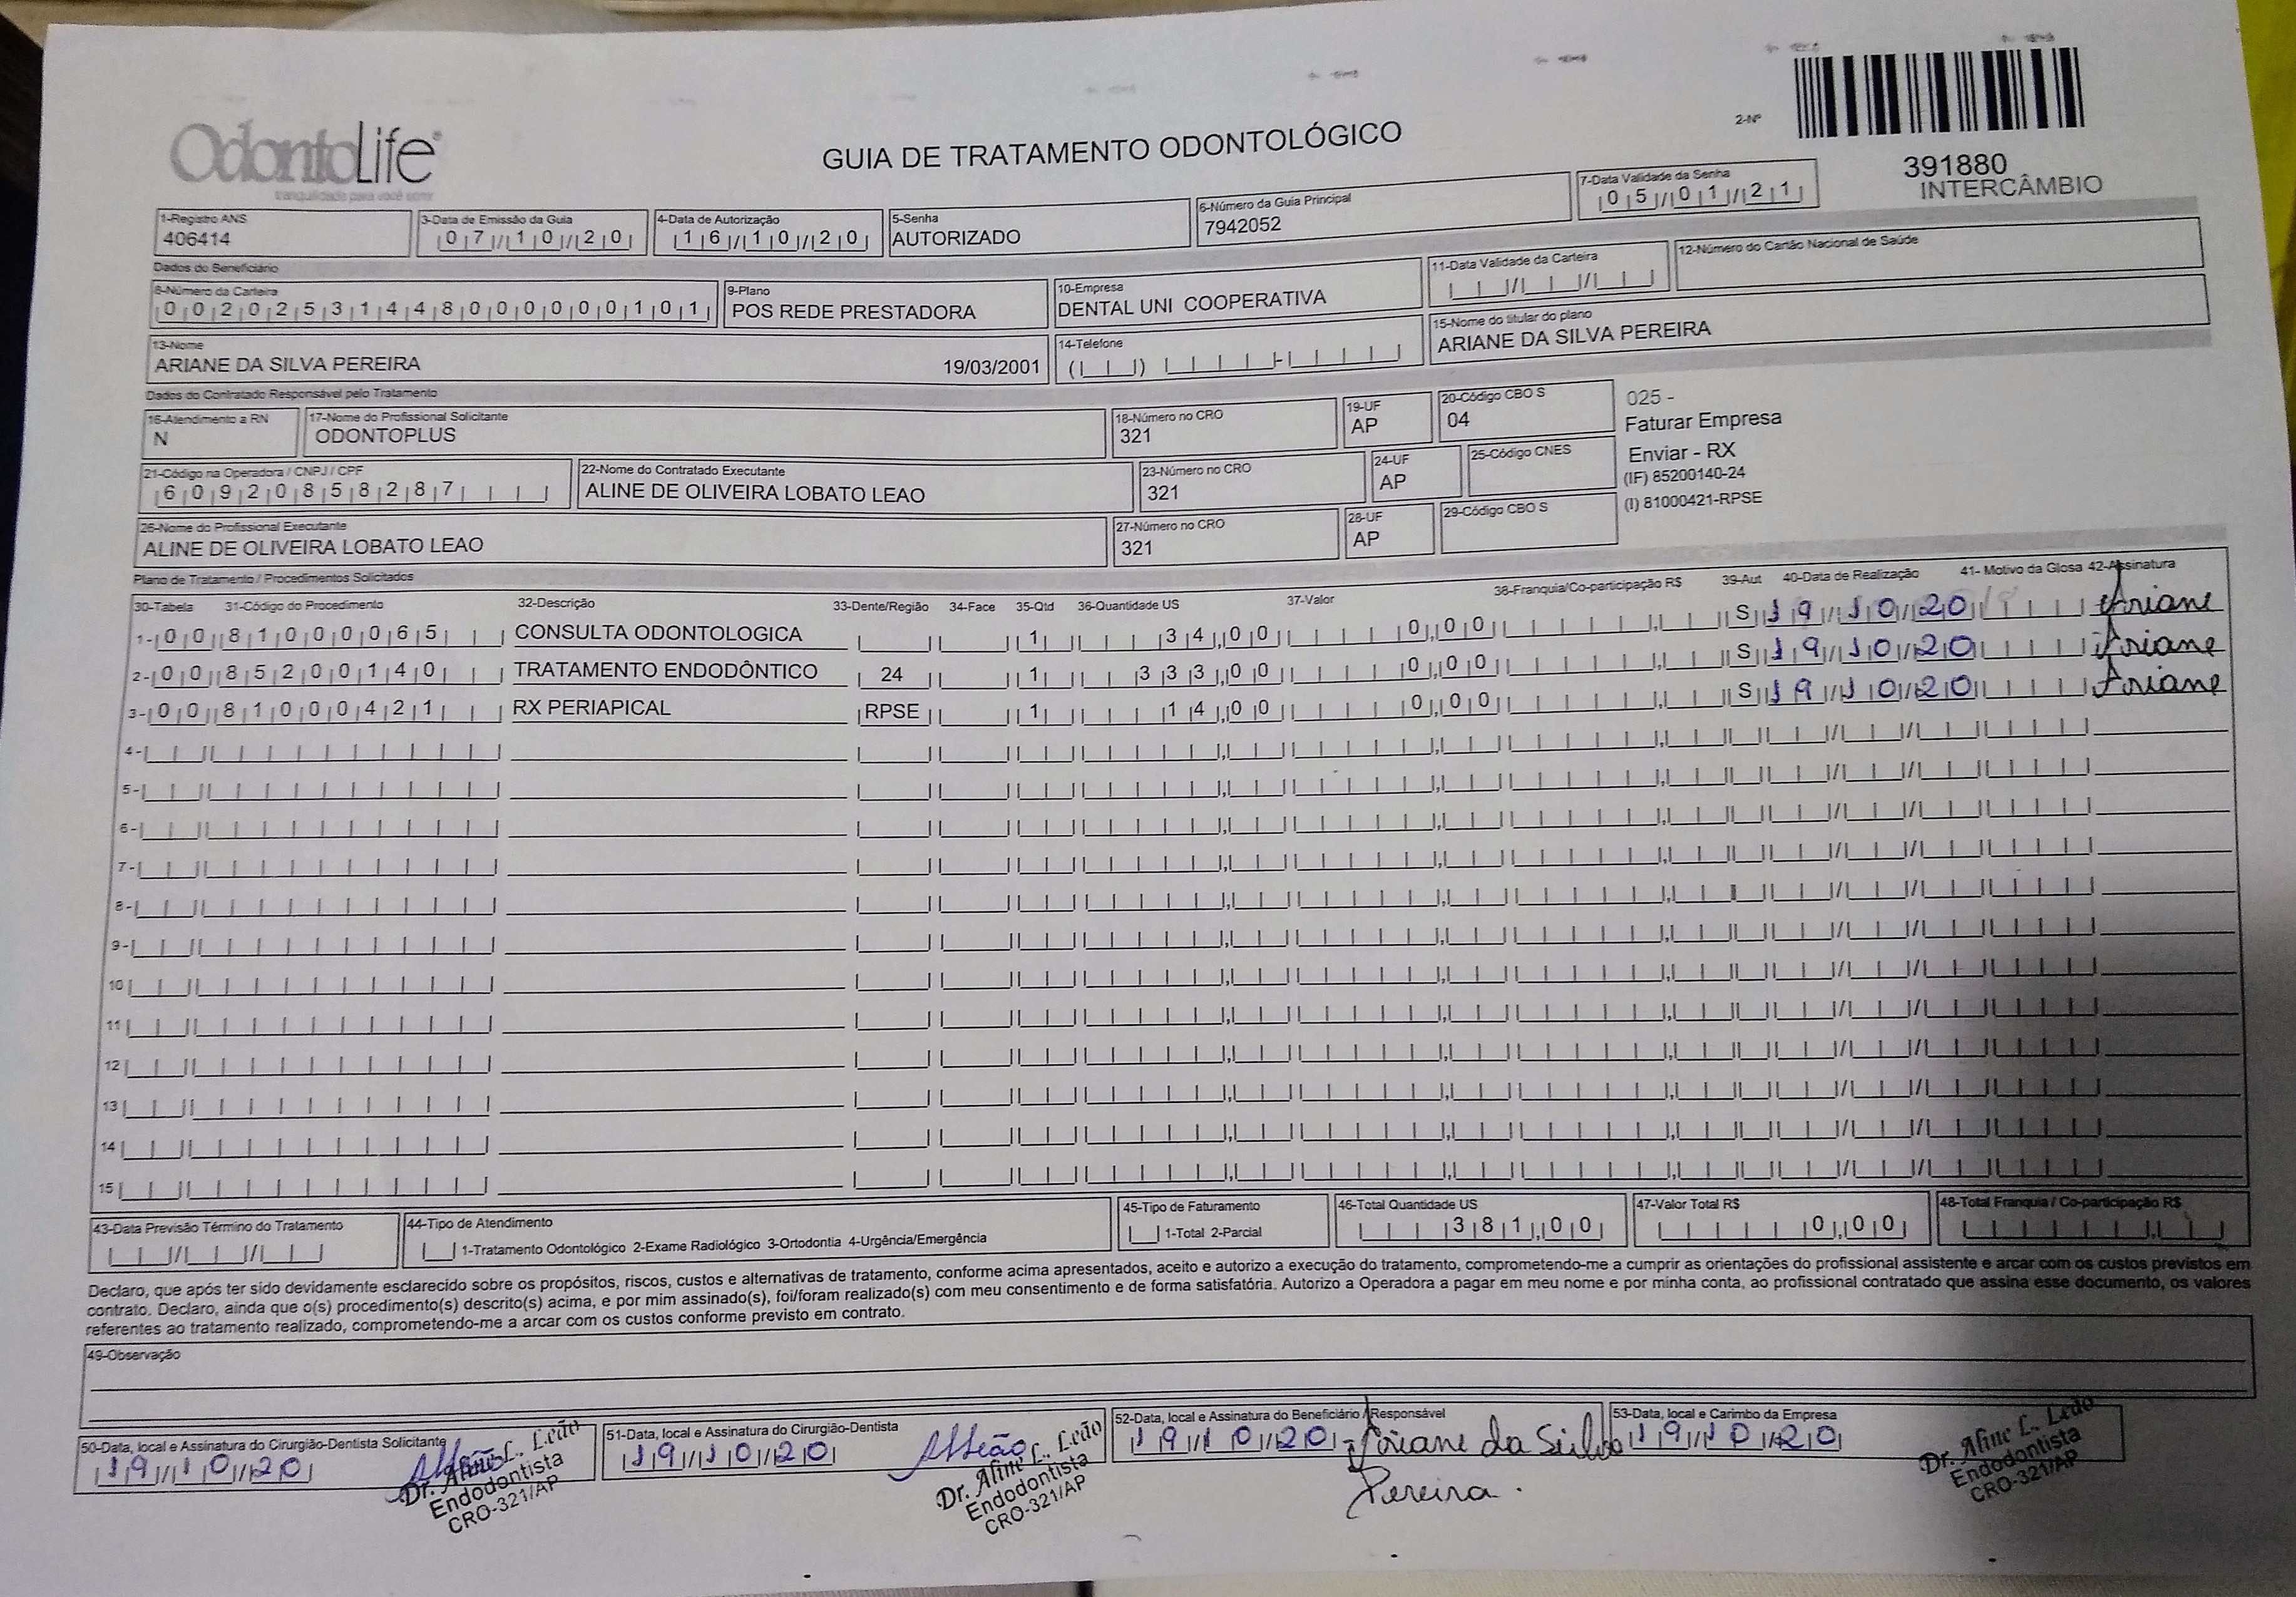 OdontoLife
tranquilidade para você sorrir
GUIA DE TRATAMENTO ODONTOLÓGICO
2-Nº
391880
INTERCÂMBIO
1-Registro ANS
406414
3-Data de Emissão da Guia
07/10/20
4-Data de Autorização
16/10/20
5-Senha
AUTORIZADO
6-Número da Guia Principal
7942052
7-Data Validade da Senha
05/01/21
Dados do Beneficiário
8-Número da Carteira
00202531448000000101
9-Plano
POS REDE PRESTADORA
10-Empresa
DENTAL UNI COOPERATIVA
11-Data Validade da Carteira
12-Número do Cartão Nacional de Saúde
13-Nome
ARIANE DA SILVA PEREIRA 19/03/2001
14-Telefone
15-Nome do titular do plano
ARIANE DA SILVA PEREIRA
Dados do Contratado Responsável pelo Tratamento
16-Atendimento a RN
N
17-Nome do Profissional Solicitante
ODONTOPLUS
18-Número no CRO
321
19-UF
AP
20-Código CBO S
04
025 -
Faturar Empresa
Enviar - RX
(IF) 85200140-24
(I) 81000421-RPSE
21-Código na Operadora / CNPJ / CPF
60920858287
22-Nome do Contratado Executante
ALINE DE OLIVEIRA LOBATO LEAO
23-Número no CRO
321
24-UF
AP
25-Código CNES
26-Nome do Profissional Executante
ALINE DE OLIVEIRA LOBATO LEAO
27-Número no CRO
321
28-UF
AP
29-Código CBO S
Plano de Tratamento / Procedimentos Solicitados
30-Tabela 31-Código do Procedimento 32-Descrição 33-Dente/Região 34-Face 35-Qtd 36-Quantidade US 37-Valor 38-Franquia/Co-participação R$ 39-Aut 40-Data de Realização 41- Motivo da Glosa 42-Assinatura
1- 00 81000065 CONSULTA ODONTOLOGICA 1 34,00 0,00 S 19/10/20 Ariane
2- 00 85200140 TRATAMENTO ENDODÔNTICO 24 1 333,00 0,00 S 19/10/20 Ariane
3- 00 81000421 RX PERIAPICAL RPSE 1 14,00 0,00 S 19/10/20 Ariane
4-
5-
6-
7-
8-
9-
10
11
12
13
14
15
43-Data Previsão Término do Tratamento
44-Tipo de Atendimento
1-Tratamento Odontológico 2-Exame Radiológico 3-Ortodontia 4-Urgência/Emergência
45-Tipo de Faturamento
1-Total 2-Parcial
46-Total Quantidade US
381,00
47-Valor Total R$
0,00
48-Total Franquia / Co-participação R$
Declaro, que após ter sido devidamente esclarecido sobre os propósitos, riscos, custos e alternativas de tratamento, conforme acima apresentados, aceito e autorizo a execução do tratamento, comprometendo-me a cumprir as orientações do profissional assistente e arcar com os custos previstos em
contrato. Declaro, ainda que o(s) procedimento(s) descrito(s) acima, e por mim assinado(s), foi/foram realizado(s) com meu consentimento e de forma satisfatória. Autorizo a Operadora a pagar em meu nome e por minha conta, ao profissional contratado que assina esse documento, os valores
referentes ao tratamento realizado, comprometendo-me a arcar com os custos conforme previsto em contrato.
49-Observação
50-Data, local e Assinatura do Cirurgião-Dentista Solicitante
19/10/20
Dr. Aline L. Leão
Endodontista
CRO-321/AP
51-Data, local e Assinatura do Cirurgião-Dentista
19/10/20
Dr. Aline L. Leão
Endodontista
CRO-321/AP
52-Data, local e Assinatura do Beneficiário / Responsável
19/10/20 Ariane da Silva
Pereira.
53-Data, local e Carimbo da Empresa
19/10/20
Dr. Aline L. Leão
Endodontista
CRO-321/AP